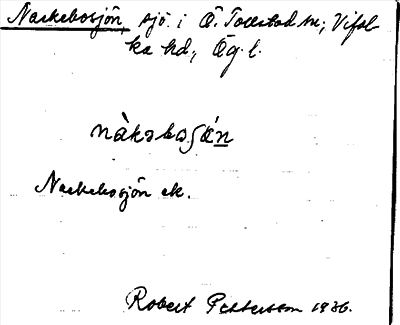 Nackebosjön, sjö i Ö. Tollstad sn; Vifol-
ka hd, Ög. l.
nàkəboʃǿn
Nackebosjön ek.
Robert Pettersson 1936.